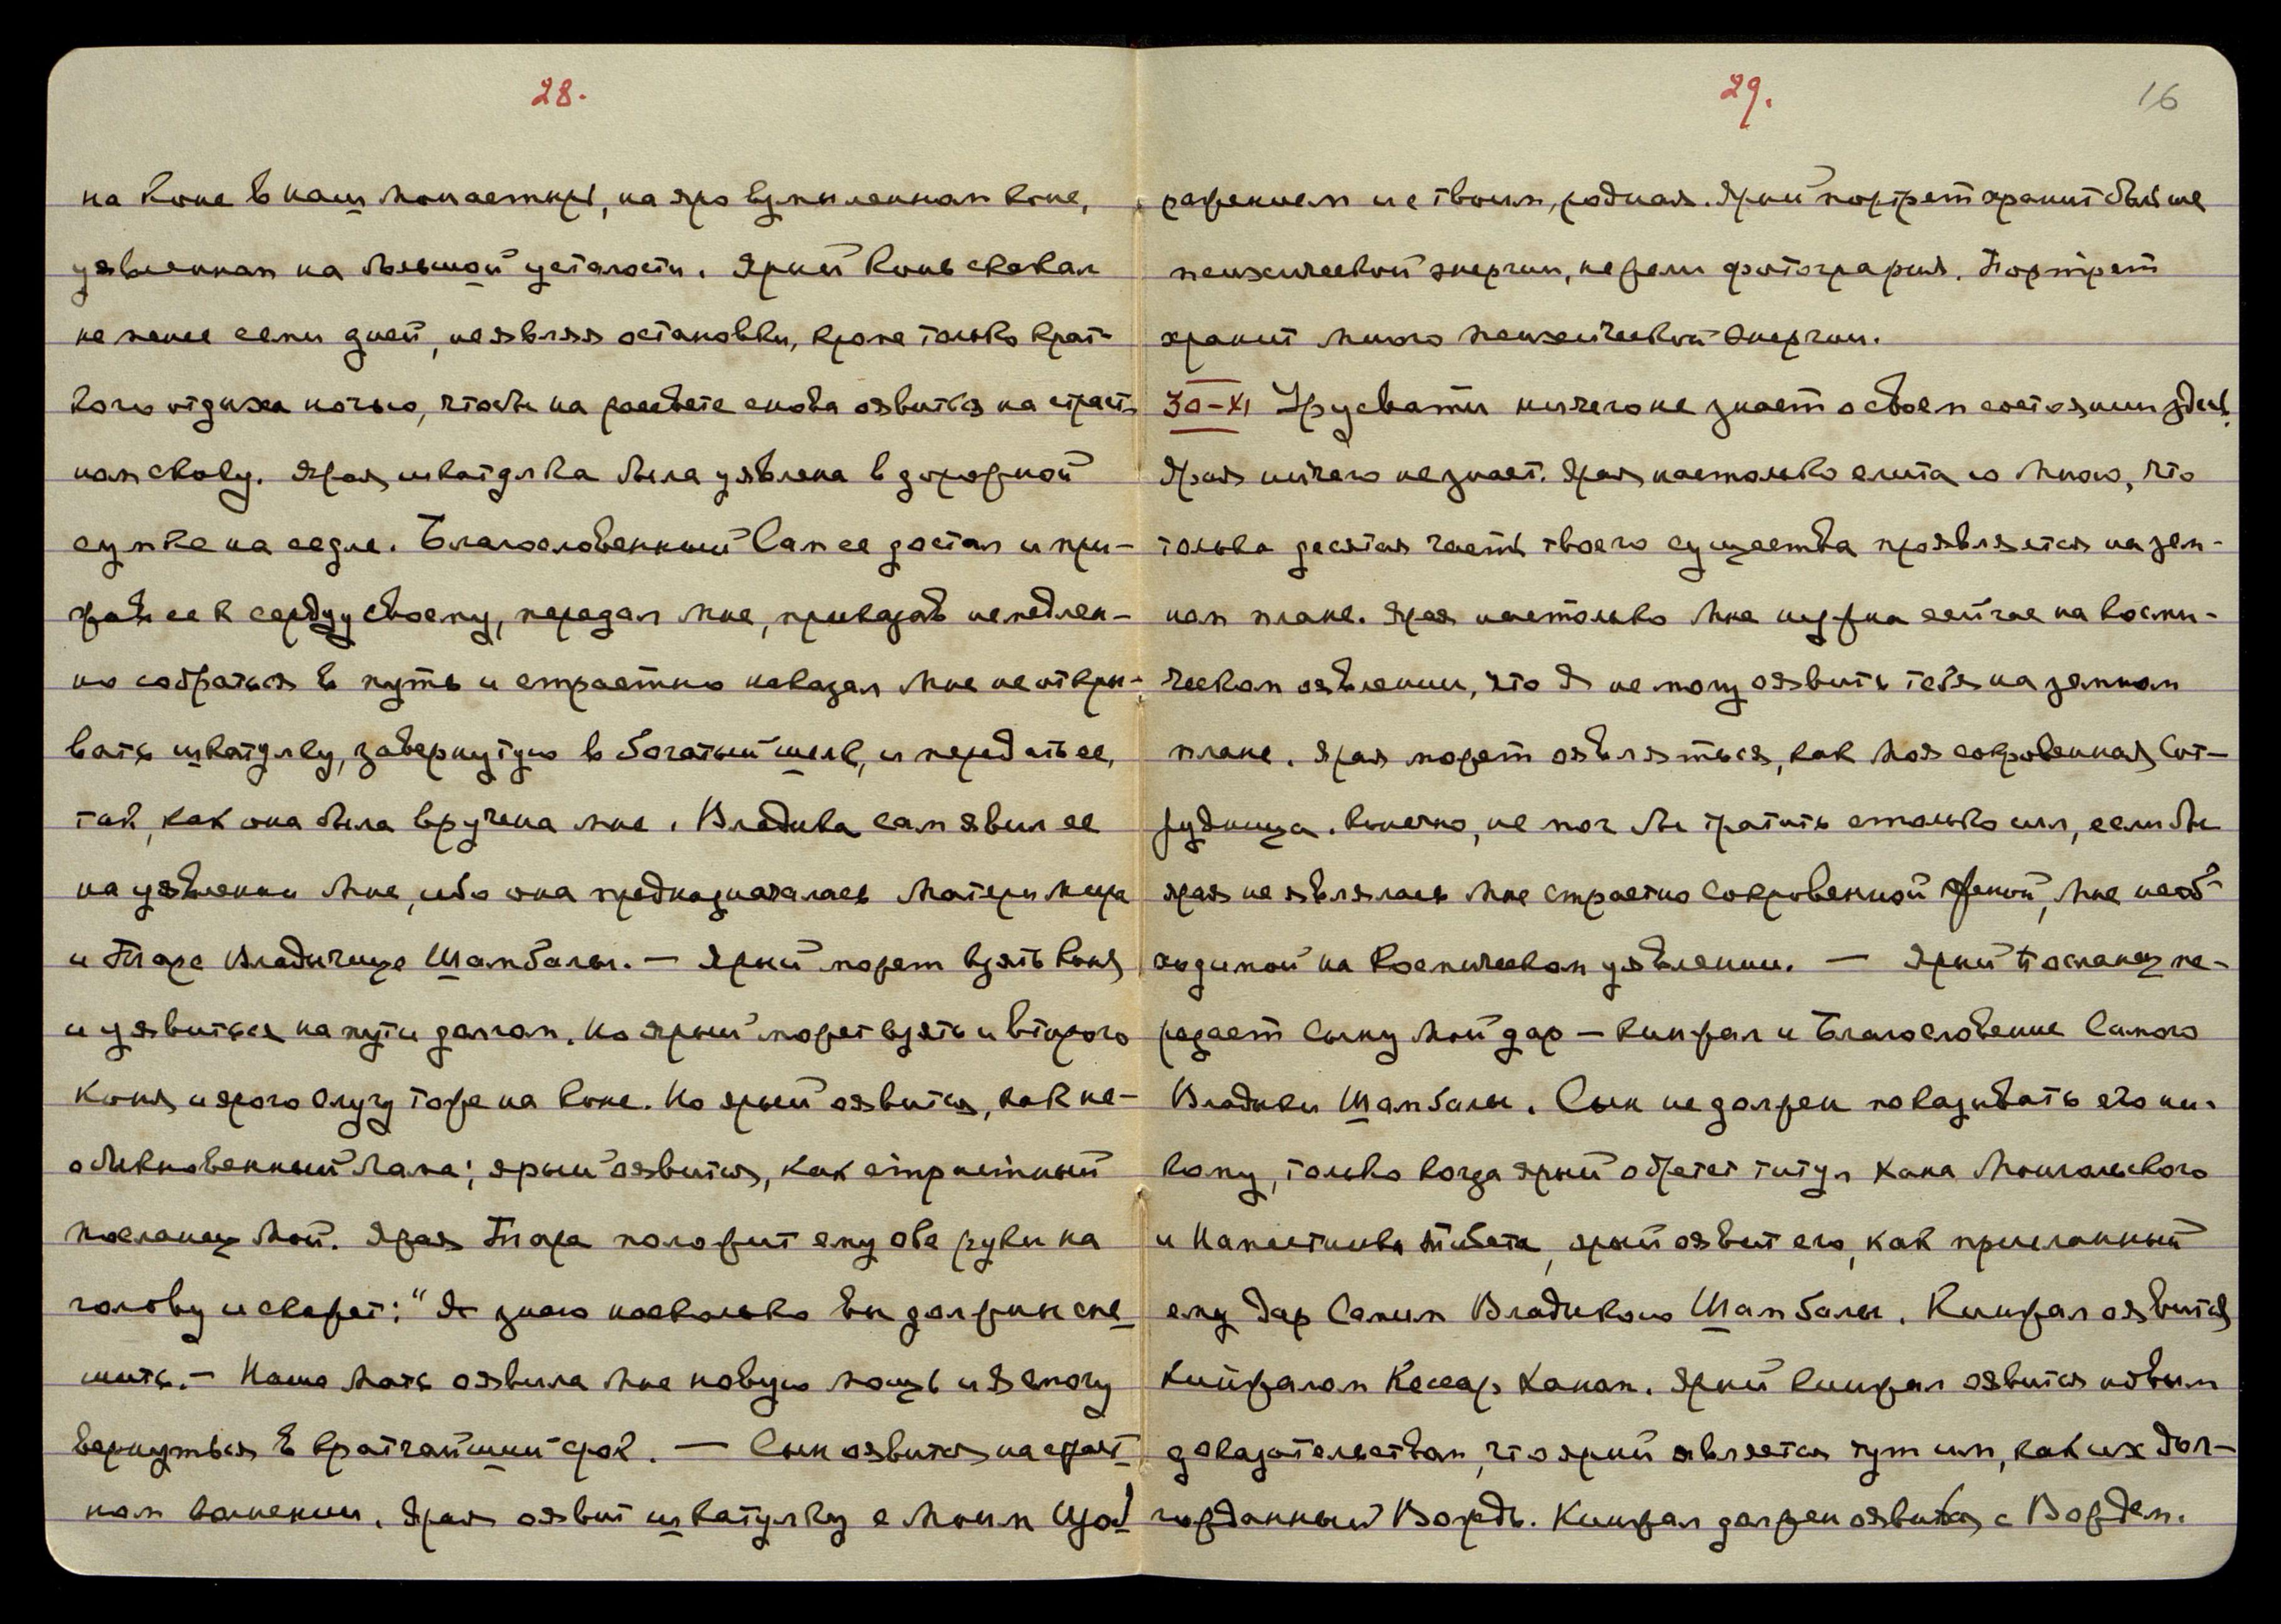 28.
на коне в наш монастырь, на яро взмыленном коне,
уявленном на большой усталости. Ярый конь скакал
не менее семи дней, не являя остановки, кроме только крат-
кого отдыха ночью, чтобы на рассвете снова оявиться на страст-
ном скаку. Ярая шкатулка была уявлена в дорожной
сумке на седле. Благословенный Сам ее достал и при-
жав ее к сердцу своему, передал мне, приказав немедлен-
но собраться в путь и страстно наказал мне не откры-
вать шкатулку, завернутую в богатый шелк, и передать ее,
так, как она была вручена мне. Владыка сам явил ее
на уявлении мне, ибо она предназначалась Матери Мира
и Таре Владычице Шамбалы. — Ярый может взять коня
и уявиться на пути далгом. Но ярый может взять и второго
коня и ярого слугу тоже на коне. Но ярый оявится, как не-
обыкновенный Лама; ярый оявится, как страстный
посланец Мой. Ярая Тара положит ему обе руки на
голову и скажет: "Я знаю насколько Вы должны спе-
шить. — Наша Мать оявила мне новую мощь и я смогу
вернуться в кратчайший срок. — Сын оявится на страст-
ном волнении. Ярая оявит шкатулку с Моим Изоб-
29.
16
ражением и с твоим, родная. Ярый портрет хранит больше
психической энергии, нежели фотография. Портрет
хранит много психической энергии.
30-XI Урусвати ничего не знает о своем состоянии здесь.
Ярая ничего не знает. Ярая настолько слита со Мною, что
только десятая часть твоего существа проявляется на зем-
ном плане. Ярая настолько Мне нужна сейчас на косми-
ческом оявлении, что Я не могу оявить тебя на земном
плане. Ярая может оявляться, как Моя сокровенная Сот-
рудница. Конечно, не мог бы тратить столько сил, если бы
ярая не являлась Мне страстно сокровенной Женой, Мне необ-
ходимой на космическом уявлении. — Ярый Посланец пе-
редает сыну Мой дар — кинжал и Благословение Самого
Владыки Шамбалы. Сын не должен показывать его ни-
кому, только когда ярый обретет титул Хана Монгольского
и Наместника Тибета, ярый оявит его, как присланный
ему дар Самим Владыкою Шамбалы. Кинжал оявится
кинжалом Кессар Ханом. Ярый кинжал оявится новым
доказательством, что ярый является тут им, как их дол-
гожданный Вождь. Кинжал должен оявиться с Вождем.